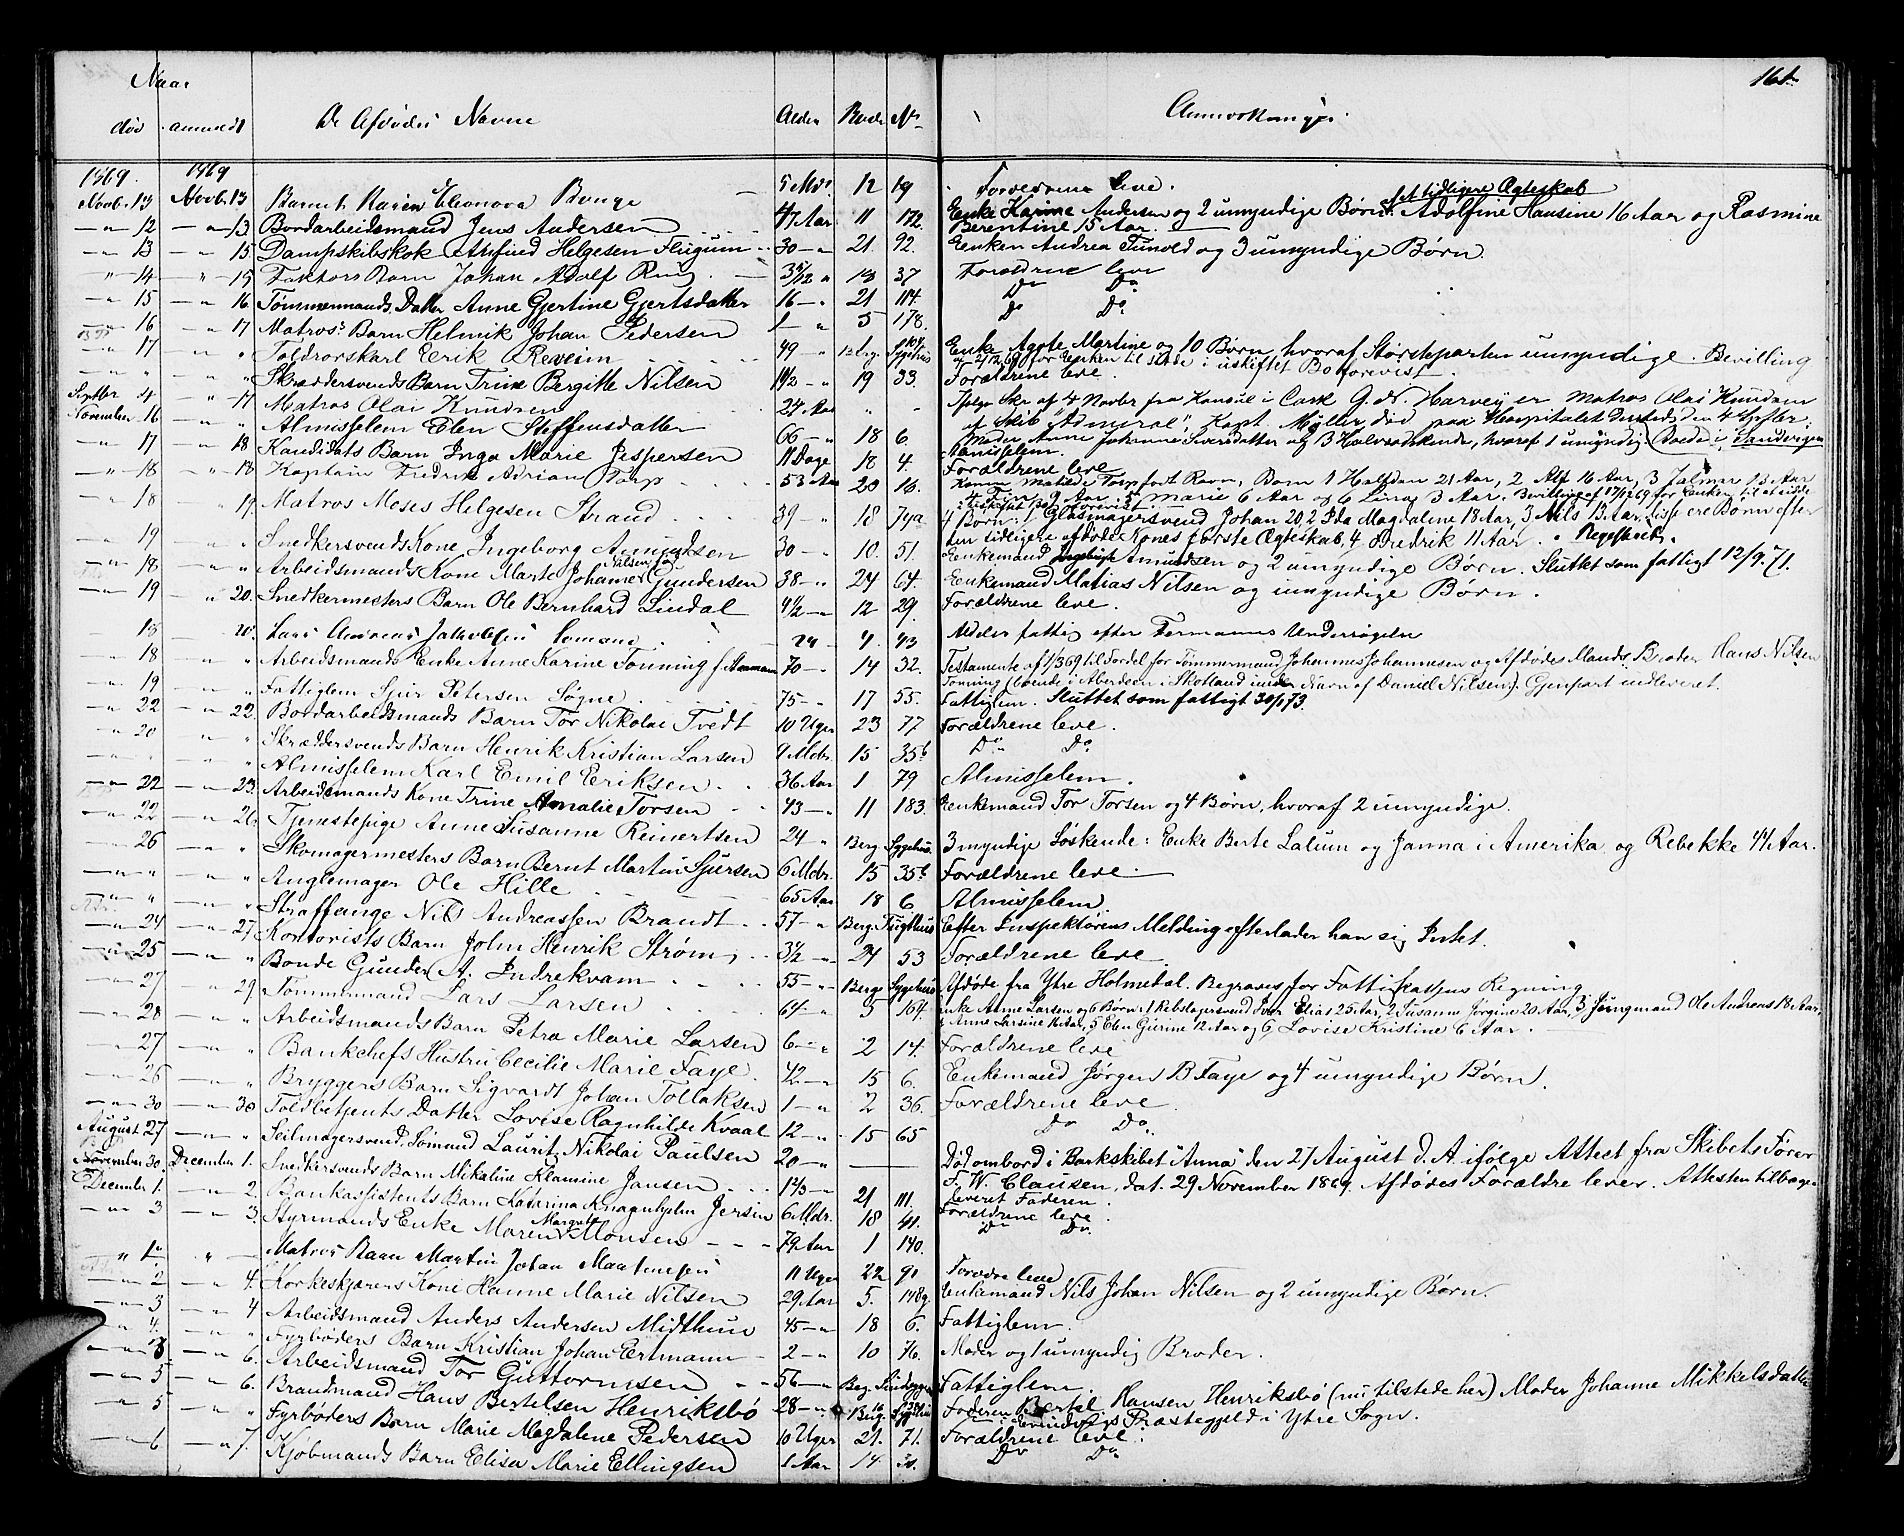 161.
Naar
død anmeldt De Afdødes Navne Alder Rode No Anmærkninger
1869. 1869
Novbr 13 Novbr 13 Barnet Karen Eleonora Bunge 5 Mdr 12 19 Forældrene leve.
-"- 12 -"- 13 Bordarbeidsmand Jens Andersen 47 Aar 11 172. Enke Karine Andersen og 2 umyndige Børn af tidligere Ægteskab Adolfine Hansine 16 Aar og Rasmine
Berentine 15 Aar.
-"- 13 -"- 15. Dampskibskok Arnfind Helgesen Flugum 30 -"- 21. 92. Enken Andrea Tunold og 3 umyndige Børn.
-"- 14 " 15 Faktors Barn Johan Adolf Krug 3 5/12 " 18 37 Forældrene leve
-"- 15 -"- 16. Tømmermands Datter Anne Gjertine Gjertsdatter 16 -"- 21 114. Do Do
-"- 16 -"- 17 Matros's Barn Helmik Johan Pedersen 1 -"- 5 178. Do Do
-"- 17 -"- " Toldrorskarl Eerik Reveim 49 -"- Berg. Sygehus Enke Agate Martine og 10 Børn, hvoraf Størsteparten umyndige. Bevilling
af 2/12 69 for Enken til at sidde i uskiftet Bo forevist.
" " Skræddersvends Barn Trine Bergitte Nilsen 1 1/2 -"- 19 33. Forældrene leve.
Septbr 4 -"- 17 Matros Olai Knudsen 24 Aar " - Ifølge Skr. af 4 Novbr fra Konsul i Cark G. N. Harvey er Matros Olai Knudsen
af Skib "Admiral", Kapt. Müller død paa Hospitalet dersteds den 4 Septbr.
November 16 " Almisselem Elen Steffensdatter 66 -"- 18 6. Moder Anne Johanne Iversdatter og 3 Halvsødskende, hvoraf 1 umyndig. Boede i Sandvigen
Almisselem.
-"- 17 " 18 Kandidats Barn Inga Marie Jespersen 11 Dage 18 4. Forældrene leve
-"- 18 -"- 18 Kaptein Fredrik Adrian Torp 53 Aar 20 16. Konen Matilde Torp født Ravn, Børn 1 Halfdan 21 Aar, 2 Alf 16 Aar, 3 Jalmar 13 Aar
4 Finn 9 Aar 5 Marie 6 Aar og 6 Lina 3 Aar. Bevilling af 17/12 69 for Enken til at sidde
i uskiftet Bo forevist.
-"- 18 " 19 Matros Moses Helgesen Strand 39 -"- 18 74a 4 Børn: 1/ Glasmagersvend Johan 20, 2 Ida Magdalene 18 Aar, 3 Nils 13 Aar, disse ere Børn efter
den tidligere afdøde Kones første Ægteskab, 4 Fredrik 11 Aar.
-"- 19 -"- " Snedkersvends Kone, Ingeborg Amundsen 30 -"- 10. 51. Enkemand Amundsen og 2 umyndige Børn. Sluttet som fattigt 12/9. 71.
-"- 18 -"- " Arbeidsmands Kone Marte Johanne Nilsen, f. Gundersen 38 -"- 24 64. Enkemand Matias Nilsen og umyndige Børn.
-"- 19 " 20. Snedkermesters Barn Ole Bernhard Lindal 4 1/2 -"- 12 29. Forældrene leve.
-"- 18 -"- 20. Lars Andreas Jakobsen 29 - 4. 43 Aldeles fattig efter Formanns Undersøgelse
-"- 18 " " Arbeidsmands Enke Anne Karine Tonning f. Ammann 70 -"- 14 32. Testamente af 1/3 69 til Fordel for Tømmermand Johannes Johannesen og Afdødes Mands Broder Hans Nilsen
Tonning (boende i Aberdeen i Skotland under Navn af Daniel Nilsen). Gjenpart indleveret.
-"- 19 -"- " Fattiglem Sjur Petersen Søgne 75 -"- 17 55. Fattiglem. Sluttet som fattigt 30/1 73.
-"- 22 -"- 22. Bordarbeidsmands Barn Tor Nikolai Tvedt 10 Uger 23 77 Forældrene leve.
-"- 20 " " Skræddersvends Barn Henrik Kristian Larsen 9 Mdr. 15 35b Do Do
-"- " -"- " Almisselem Karl Emil Eriksen 36 Aar 1 79 Almisselem.
-"- 22 -"- 23. Arbeidsmands Kone Trine Amalie Torsen 43 -"- 11 183. Enkemand Tor Torsen og 4 Børn, hvoraf 2 umyndige.
-"- 22 -"- 26. Tjenestepige Anne Susanne Reinertsen 24 " Berg. Sygehus. 3 myndige Søskende: Enke Berte Lalum og Janna i Amerika og Rebekke 44 Aar.
-"- 26 -"- " Skomagermesters Barn Bernt Martin Sjursen 6 Mdr. 15 35b Forældrene leve.
-"- " -"- " Anglemager Ole Hille 65 Aar 18 6 Almisselem.
-"- 24 -"- 27. Straffange Nils Andreassen Brandt 57 -"- Berg. Tugthus Efter Inspektørens Melding efterlader han sig Intet.
-"- 25 -"- " Kontorists Barn John Henrik Strøm 3 1/2 -"- 24 53 Forældrene leve
-"- 27 -"- 29. Bonde Gunder A. Indrekvam 55 -"- Berge Sygehus Afdøde fra Ytre Holmedal. Begraves for Fattigkassens Regning
-"- 28 -"- " Tømmermand Lars Larsen 64 -"- 5 164. Enke Anne Larsen og 6 Børn: 1 Rebslagersvend Iver Elias 25 Aar, 2 Susanne Jørgine 20 Aar, 3 Jungmand Ole Andreas 18 Aar,
4 Anne Larsine 14 Aar, 5 Elen Gurine 12 Aar og 6, Lovise Kristine 6 Aar.
-"- 27 -"- " Arbeidsmands Barn Petra Marie Larsen 6 -"- 2 14. Forældrene leve
-"- 26 -"- " Bankchefs Hustru Cecilie Marie Faye. 42 -"- 15 6. Enkemand Jørgen B Faye og 4 umyndige Børn.
-"- 30 -"- 30 Bryggers Barn Sigvardt Johan Tollaksen 1 -"- 2 36. Forældrene leve
" Toldbetjents Datter Lovise Ragnhilde Kvaal 12 -"- 15 65 Do Do.
August 27 -"- " Seilmagersvend, Sømand Laurits Nikolai Paulsen 20 -"- Død ombord i Barkskibet "Anna" den 27 August d. A. ifølge Attest fra Skibets Fører
F. W. Clausen, dat. 29 November 1869. Afdødes Forældre lever. Attesten tilbage-
leveret Faderen.
November 30. December 1. Snedkersvends Barn Mikaline Klamine Jansen 1 2/3 -"- 21 111. Forældrene leve.
December 1. -"- 2. Bankassistents Barn Katarina Knagenhjelm Jersin 6 Mdr. 18 41. Do Do.
-"- 3 -"- 3. Styrmands Enke Maren Margrete Monsen 79 Aar 1 140.
" 1. " - Matros Barn Martin Johan Martinsen 11 Uger 22 91 Forældre leve
-"- 2 -"- 4. Korkeskjærers Kone Hanne Marie Nilsen 29 Aar 5. 148g Enkemand Nils Johan Nilsen og 2 umyndige Børn.
-"- 3 -"- 4 Arbeidsmand Anders Andersen Midthun 45 -"- 18 6. Fattiglem.
-"- 4. -"- " Fyrbøders Barn Kristian Johan Ertmann 2 -"- 10 76. Moder og 1 umyndig Broder.
-"- 3 -"- 6. Arbeidsmand Tor Guttormsen 56 -"- Fattiglem.
-"- 5 -"- 6. Brandmand Hans Bertelsen Henriksbø 28 -"- Berg. Sygehus Faderen Bertel Hansen Henriksbø (nu tilstede her) Moder Johanne Mikkelsdatter
Evindvigs Præstegjeld i Ytre Sogn.
-"- 5 " Fyrbøders Barn Marie Magdalene Pedersen 10 Uger 21. 71. Forældrene leve.
-"- 6 -"- 7. Kjøbmands Barn Elisa Marie Ellingsen 1 Aar 14 Do Do